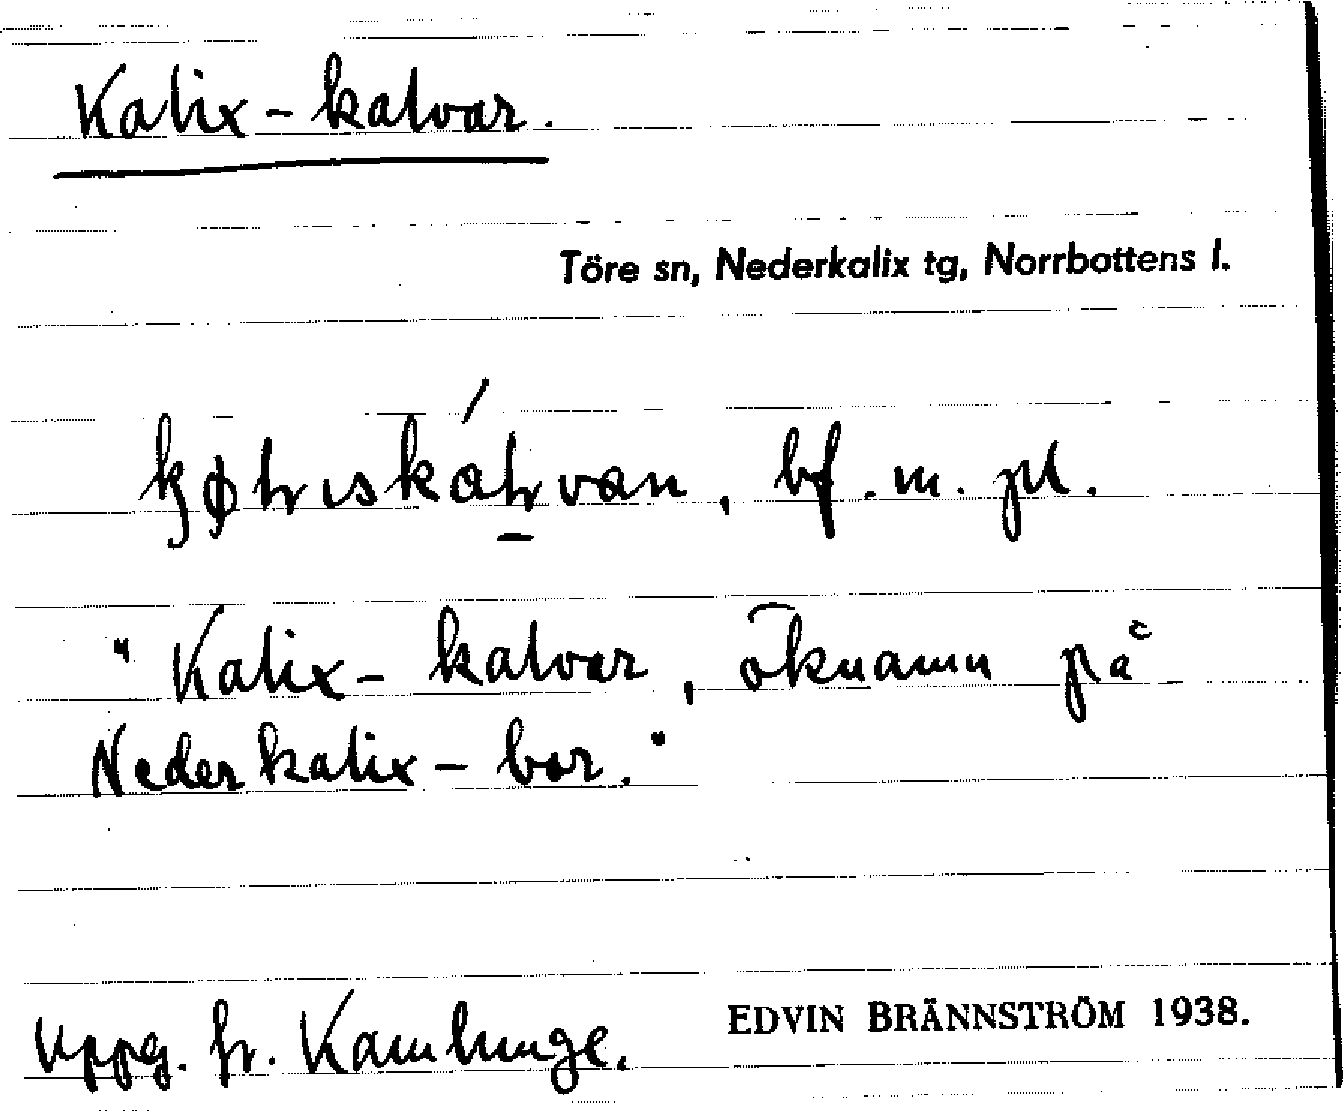 Kalix-kalvar.
Töre sn, Nederkalix tg, Norrbottens l.
bf. m. pl.
"Kalix-kalvar, öknamn på
Nederkalix-bor."
Uppg. fr. Kamlunge.
EDVIN BRÄNNSTRÖM 1938.